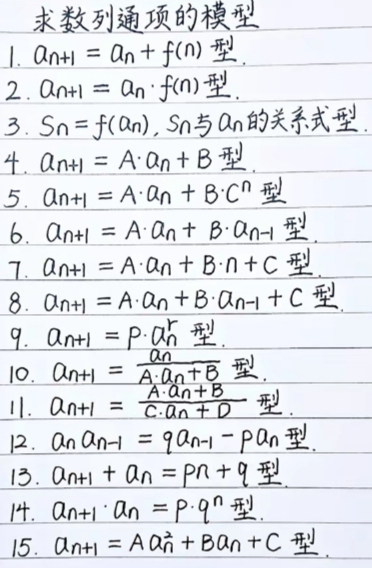 求数列通项的模型
1. aₙ₊₁ = aₙ + f(n) 型.
2. aₙ₊₁ = aₙ · f(n) 型.
3. Sₙ = f(aₙ), Sₙ与aₙ的关系式型.
4. aₙ₊₁ = A·aₙ + B 型.
5. aₙ₊₁ = A·aₙ + B·Cⁿ 型
6. aₙ₊₁ = A·aₙ + B·aₙ₋₁ 型.
7. aₙ₊₁ = A·aₙ + B·n + C 型.
8. aₙ₊₁ = A·aₙ + B·aₙ₋₁ + C 型.
9. aₙ₊₁ = p·aₙʳ 型.
10. aₙ₊₁ = aₙ/(A·aₙ+B) 型.
11. aₙ₊₁ = (A·aₙ+B)/(C·aₙ+D) 型.
12. aₙ aₙ₋₁ = qaₙ₋₁ - paₙ 型.
13. aₙ₊₁ + aₙ = pn + q 型.
14. aₙ₊₁ · aₙ = p·qⁿ 型.
15. aₙ₊₁ = Aaₙ² + Baₙ + C 型.